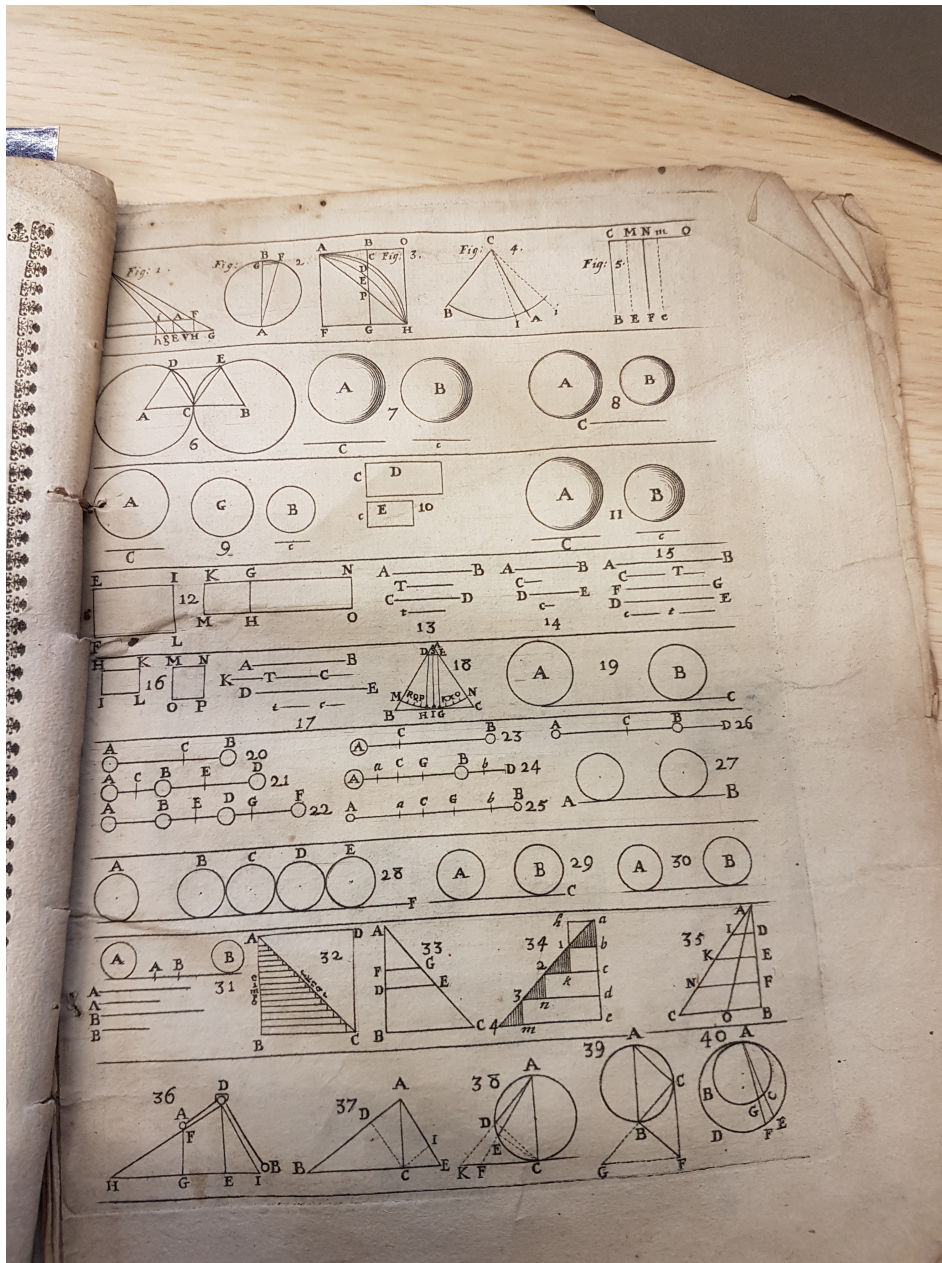 Fig: 1. Fig: 2 Fig: 3. Fig: 4. Fig: 5.
i A F
h g E V H G
B F
G
A
A B O
C
D
E
P
F G H
C
B I A i
C M N m O
B E F c
D E
A C B
6
A B
7
C c
A B
8
C
A G B
C 9 c
C D
c E 10
A B
11
C c
E I K G N
12
F L M H O
A B
T
C D
t
13
A B
C
D E
c
14
15
A B
C T
F G
D E
c t
H K M N
16
I L O P
A B
K T C
D E
t c
17
D E
18
M R Q P K X O N
B H I G C
A 19 B
C
A C B 20
A C B E D 21
A B E D G F 22
A C B 23
A a C G B b D 24
A a C G b B 25
A C B D 26
27
A B
A B C D E 28
F
A B 29
C
A 30 B
A A B B
31
A
A
B
B
A D
32
B C
A
33
F G
D E
B C
h a
34 1 b
2 k c
3 n d
4 m e
A
35 I D
K E
N F
C O B
36 D
A
F B
H G E I
A
37 D
I
B C E
38 A
D
E
K F C
39 A
C
B
G F
40 A
B C
G
D F E